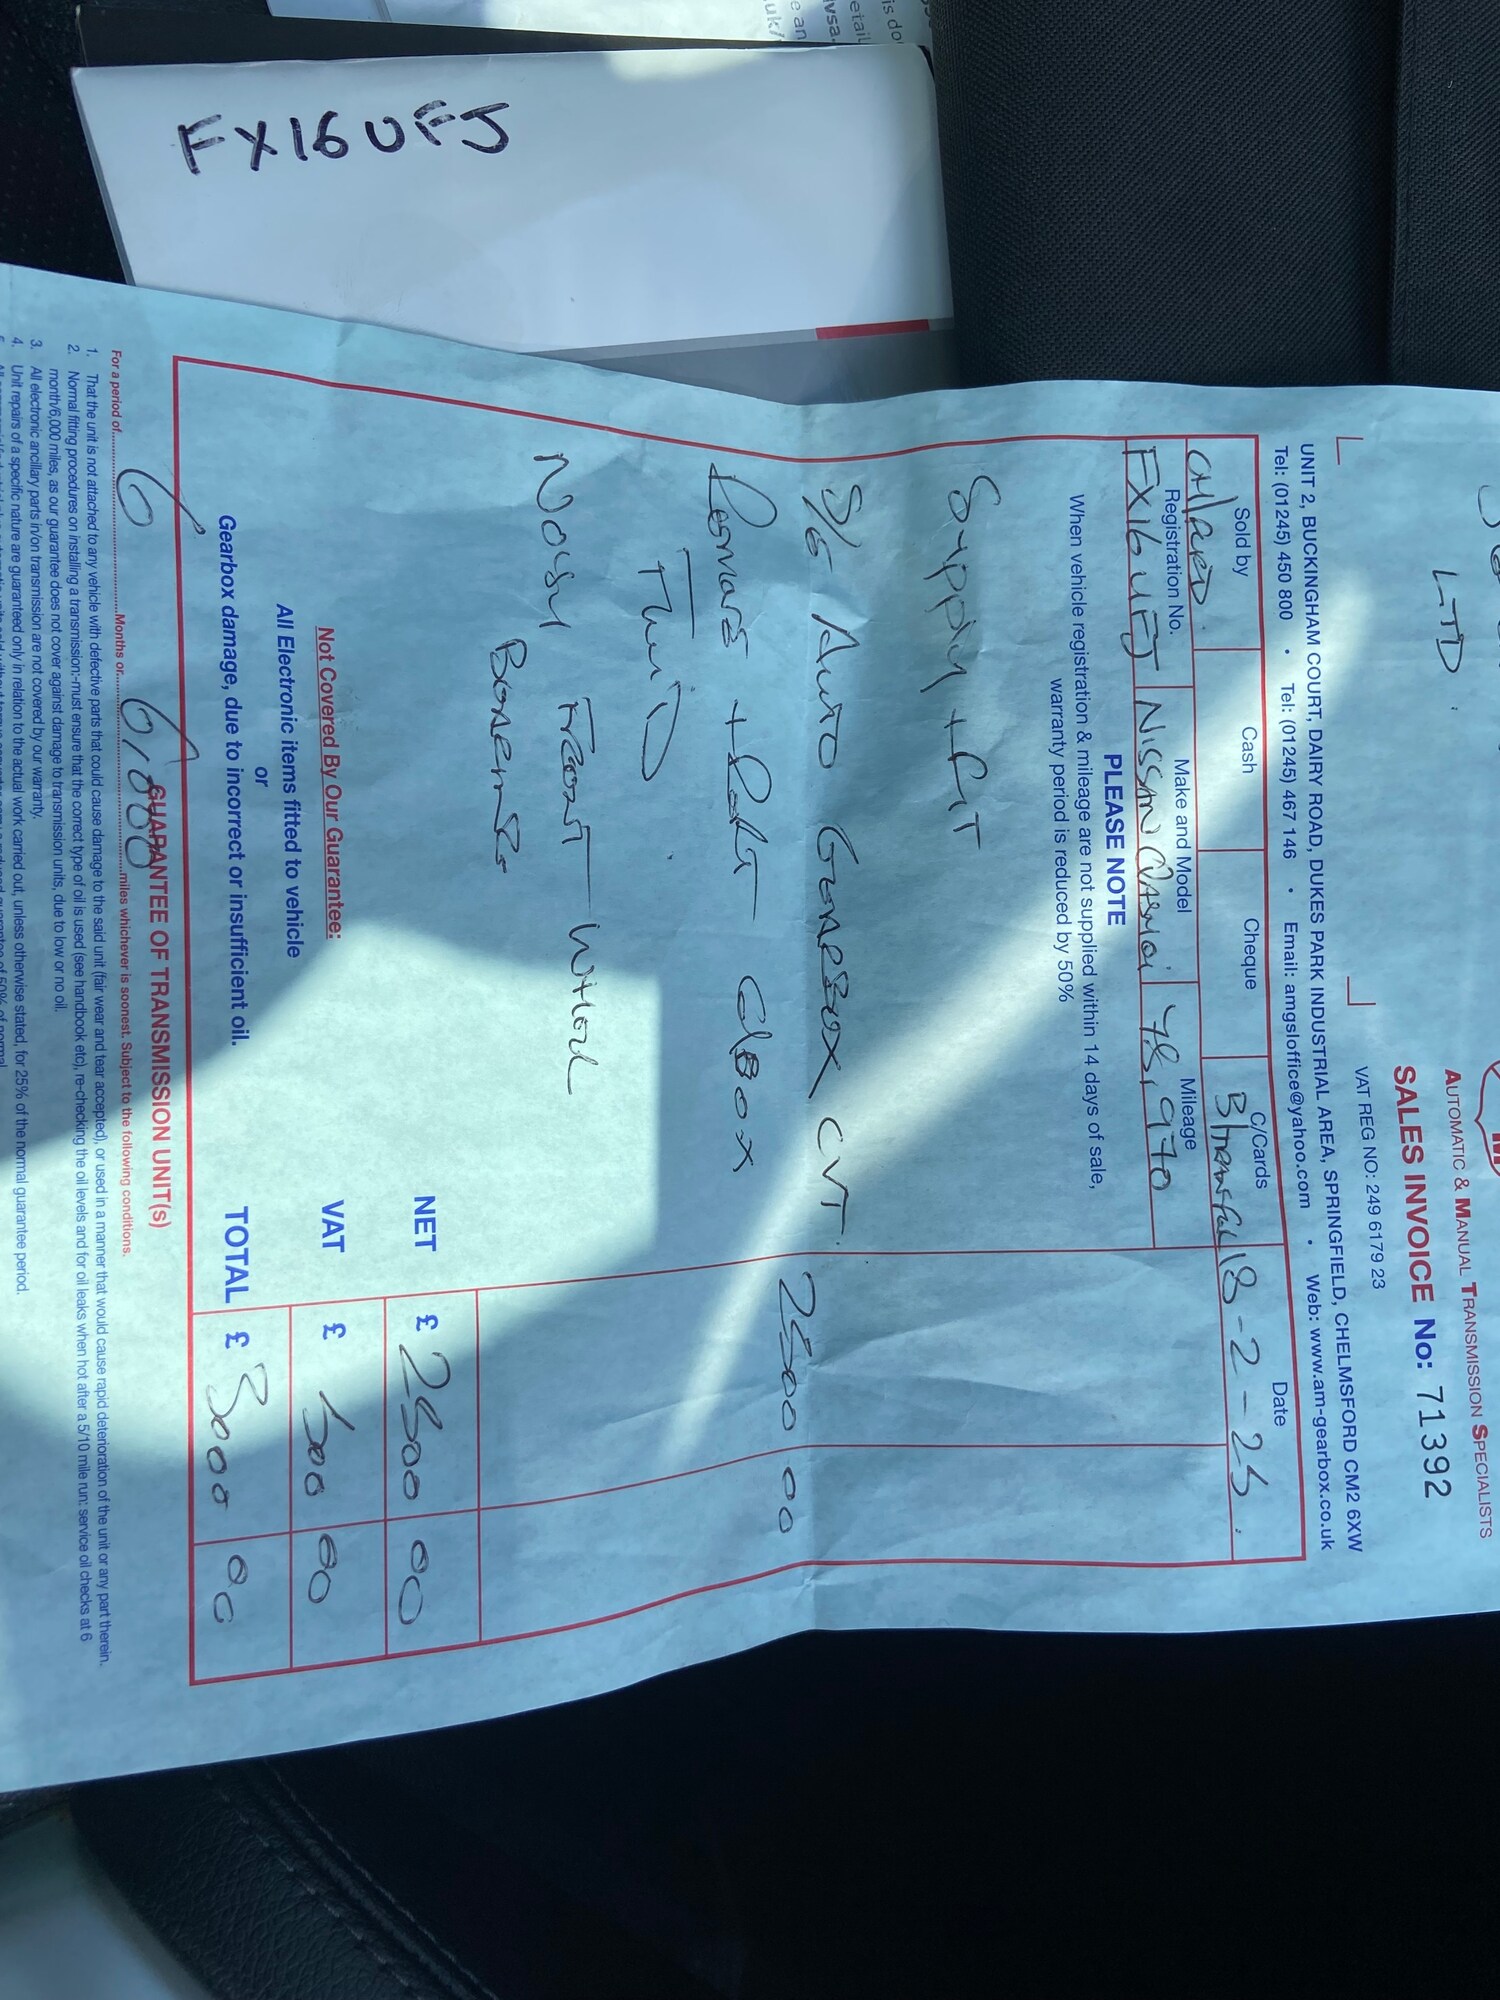 FX16UFJ
LTD
AUTOMATIC & MANUAL TRANSMISSION SPECIALISTS
SALES INVOICE No: 71392
VAT REG NO: 249 6179 23
UNIT 2, BUCKINGHAM COURT, DAIRY ROAD, DUKES PARK INDUSTRIAL AREA, SPRINGFIELD, CHELMSFORD CM2 6XW
Tel: (01245) 450 800 • Tel: (01245) 467 146 • Email: amgsloffice@yahoo.com • Web: www.am-gearbox.co.uk
Sold by Cash Cheque C/Cards Date
18-2-25
Registration No. Make and Model Mileage
FX16 UFJ NISSAN 78,970
PLEASE NOTE
When vehicle registration & mileage are not supplied within 14 days of sale,
warranty period is reduced by 50%
Supply + fit
S/E AUTO GEARBOX CVT. 2500 00
NOISY FRONT WHEEL
BEARINGS
Not Covered By Our Guarantee:
All Electronic items fitted to vehicle
or
Gearbox damage, due to incorrect or insufficient oil.
NET £ 2500 00
VAT £ 500 00
TOTAL £ 3000 00
GUARANTEE OF TRANSMISSION UNIT(s)
For a period of 6 Months or 6,000 miles whichever is soonest. Subject to the following conditions.
1. That the unit is not attached to any vehicle with defective parts that could cause damage to the said unit (fair wear and tear accepted), or used in a manner that would cause rapid deterioration of the unit or any part therein.
2. Normal fitting procedures on installing a transmission:-must ensure that the correct type of oil is used (see handbook etc), re-checking the oil levels and for oil leaks when hot after a 5/10 mile run: service oil checks at 6
month/6,000 miles, as our guarantee does not cover against damage to transmission units, due to low or no oil.
3. All electronic ancillary parts in/on transmission are not covered by our warranty.
4. Unit repairs of a specific nature are guaranteed only in relation to the actual work carried out, unless otherwise stated, for 25% of the normal guarantee period.